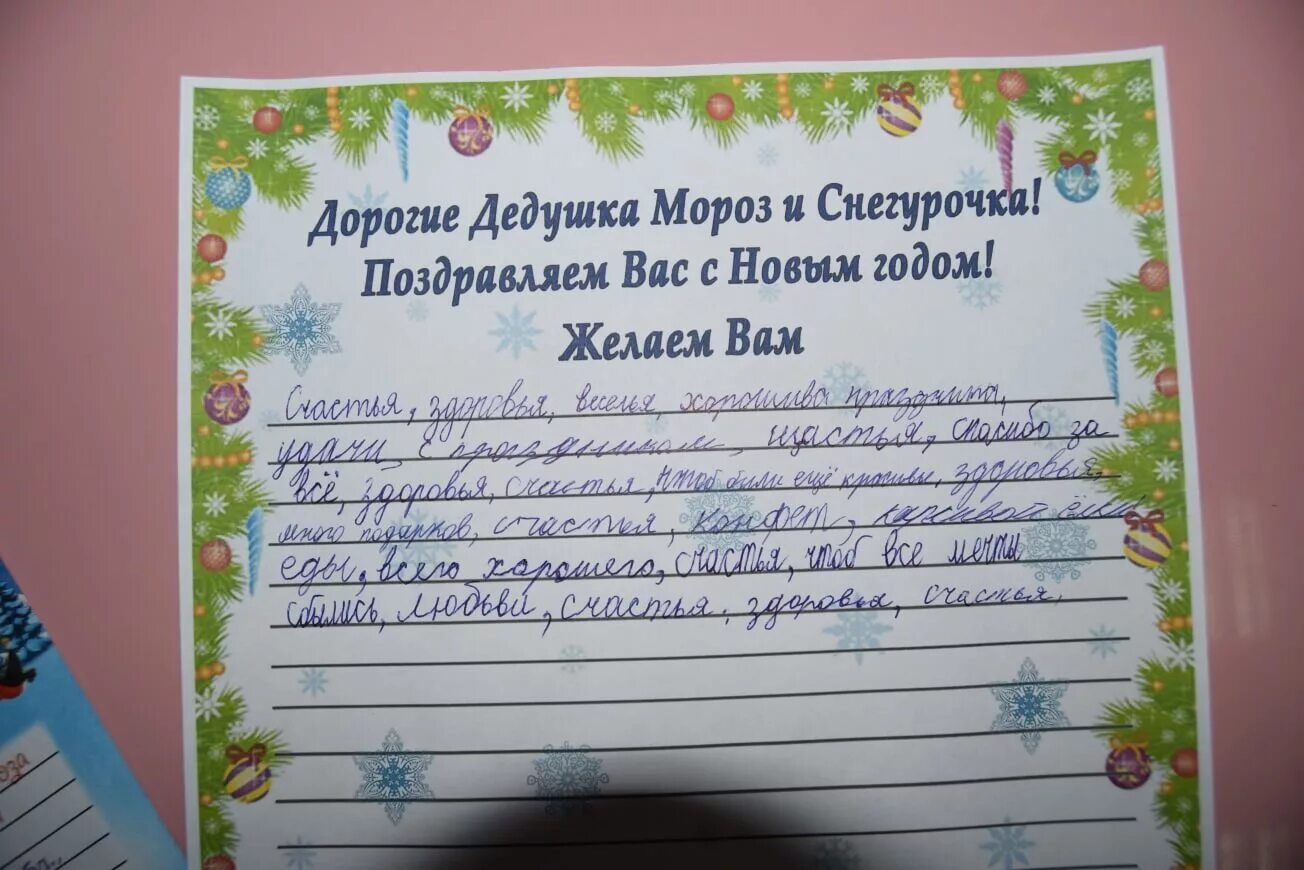 Дорогие Дедушка Мороз и Снегурочка!
Поздравляем Вас с Новым годом!
Желаем Вам
Счастья, здоровья, веселья, хорошива праздника,
удачи, с праздником, щастья, спасибо за
всё, здоровья, счастья, чтоб были ещё красивы, здоровья,
много подарков, счастья, конфет, ёлки
еды, всего хорошего, счастья, чтоб все мечты
сбылись, любьви, счастья, здоровья, счастья.
оза